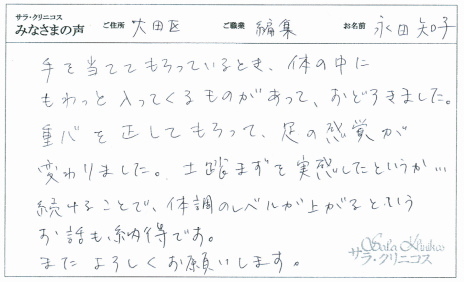 サラ・クリニコス
みなさまの声 ご住所 大田区 ご職業 編集 お名前 永田知子
手を当ててもらっているとき、体の中に
もわっと入ってくるものがあって、おどろきました。
重心を正してもらって、足の感覚が
変わりました。土踏まずを実感したというか…
続けることで、体調のレベルが上がるという
お話も、納得です。
またよろしくお願いします。
Sala Klinikos
サラ・クリニコス